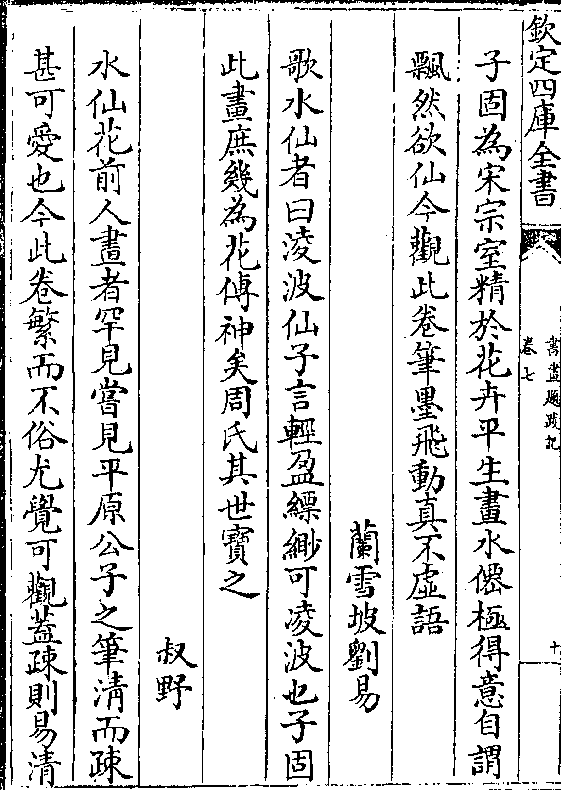 欽定四庫全書
書畫題跋記
卷七
十
子固為宋宗室精於花卉平生畫水僊極得意自謂
飄然欲仙今觀此卷筆墨飛動真不虛語
蘭雪坡劉易
歌水仙者曰淩波仙子言輕盈縹緲可凌波也子固
此畫庶幾為花傳神矣周氏其世寶之
叔野
水仙花前人畫者罕見嘗見平原公子之筆清而疎
甚可愛也今此卷繁而不俗尤覺可觀蓋疎則易清